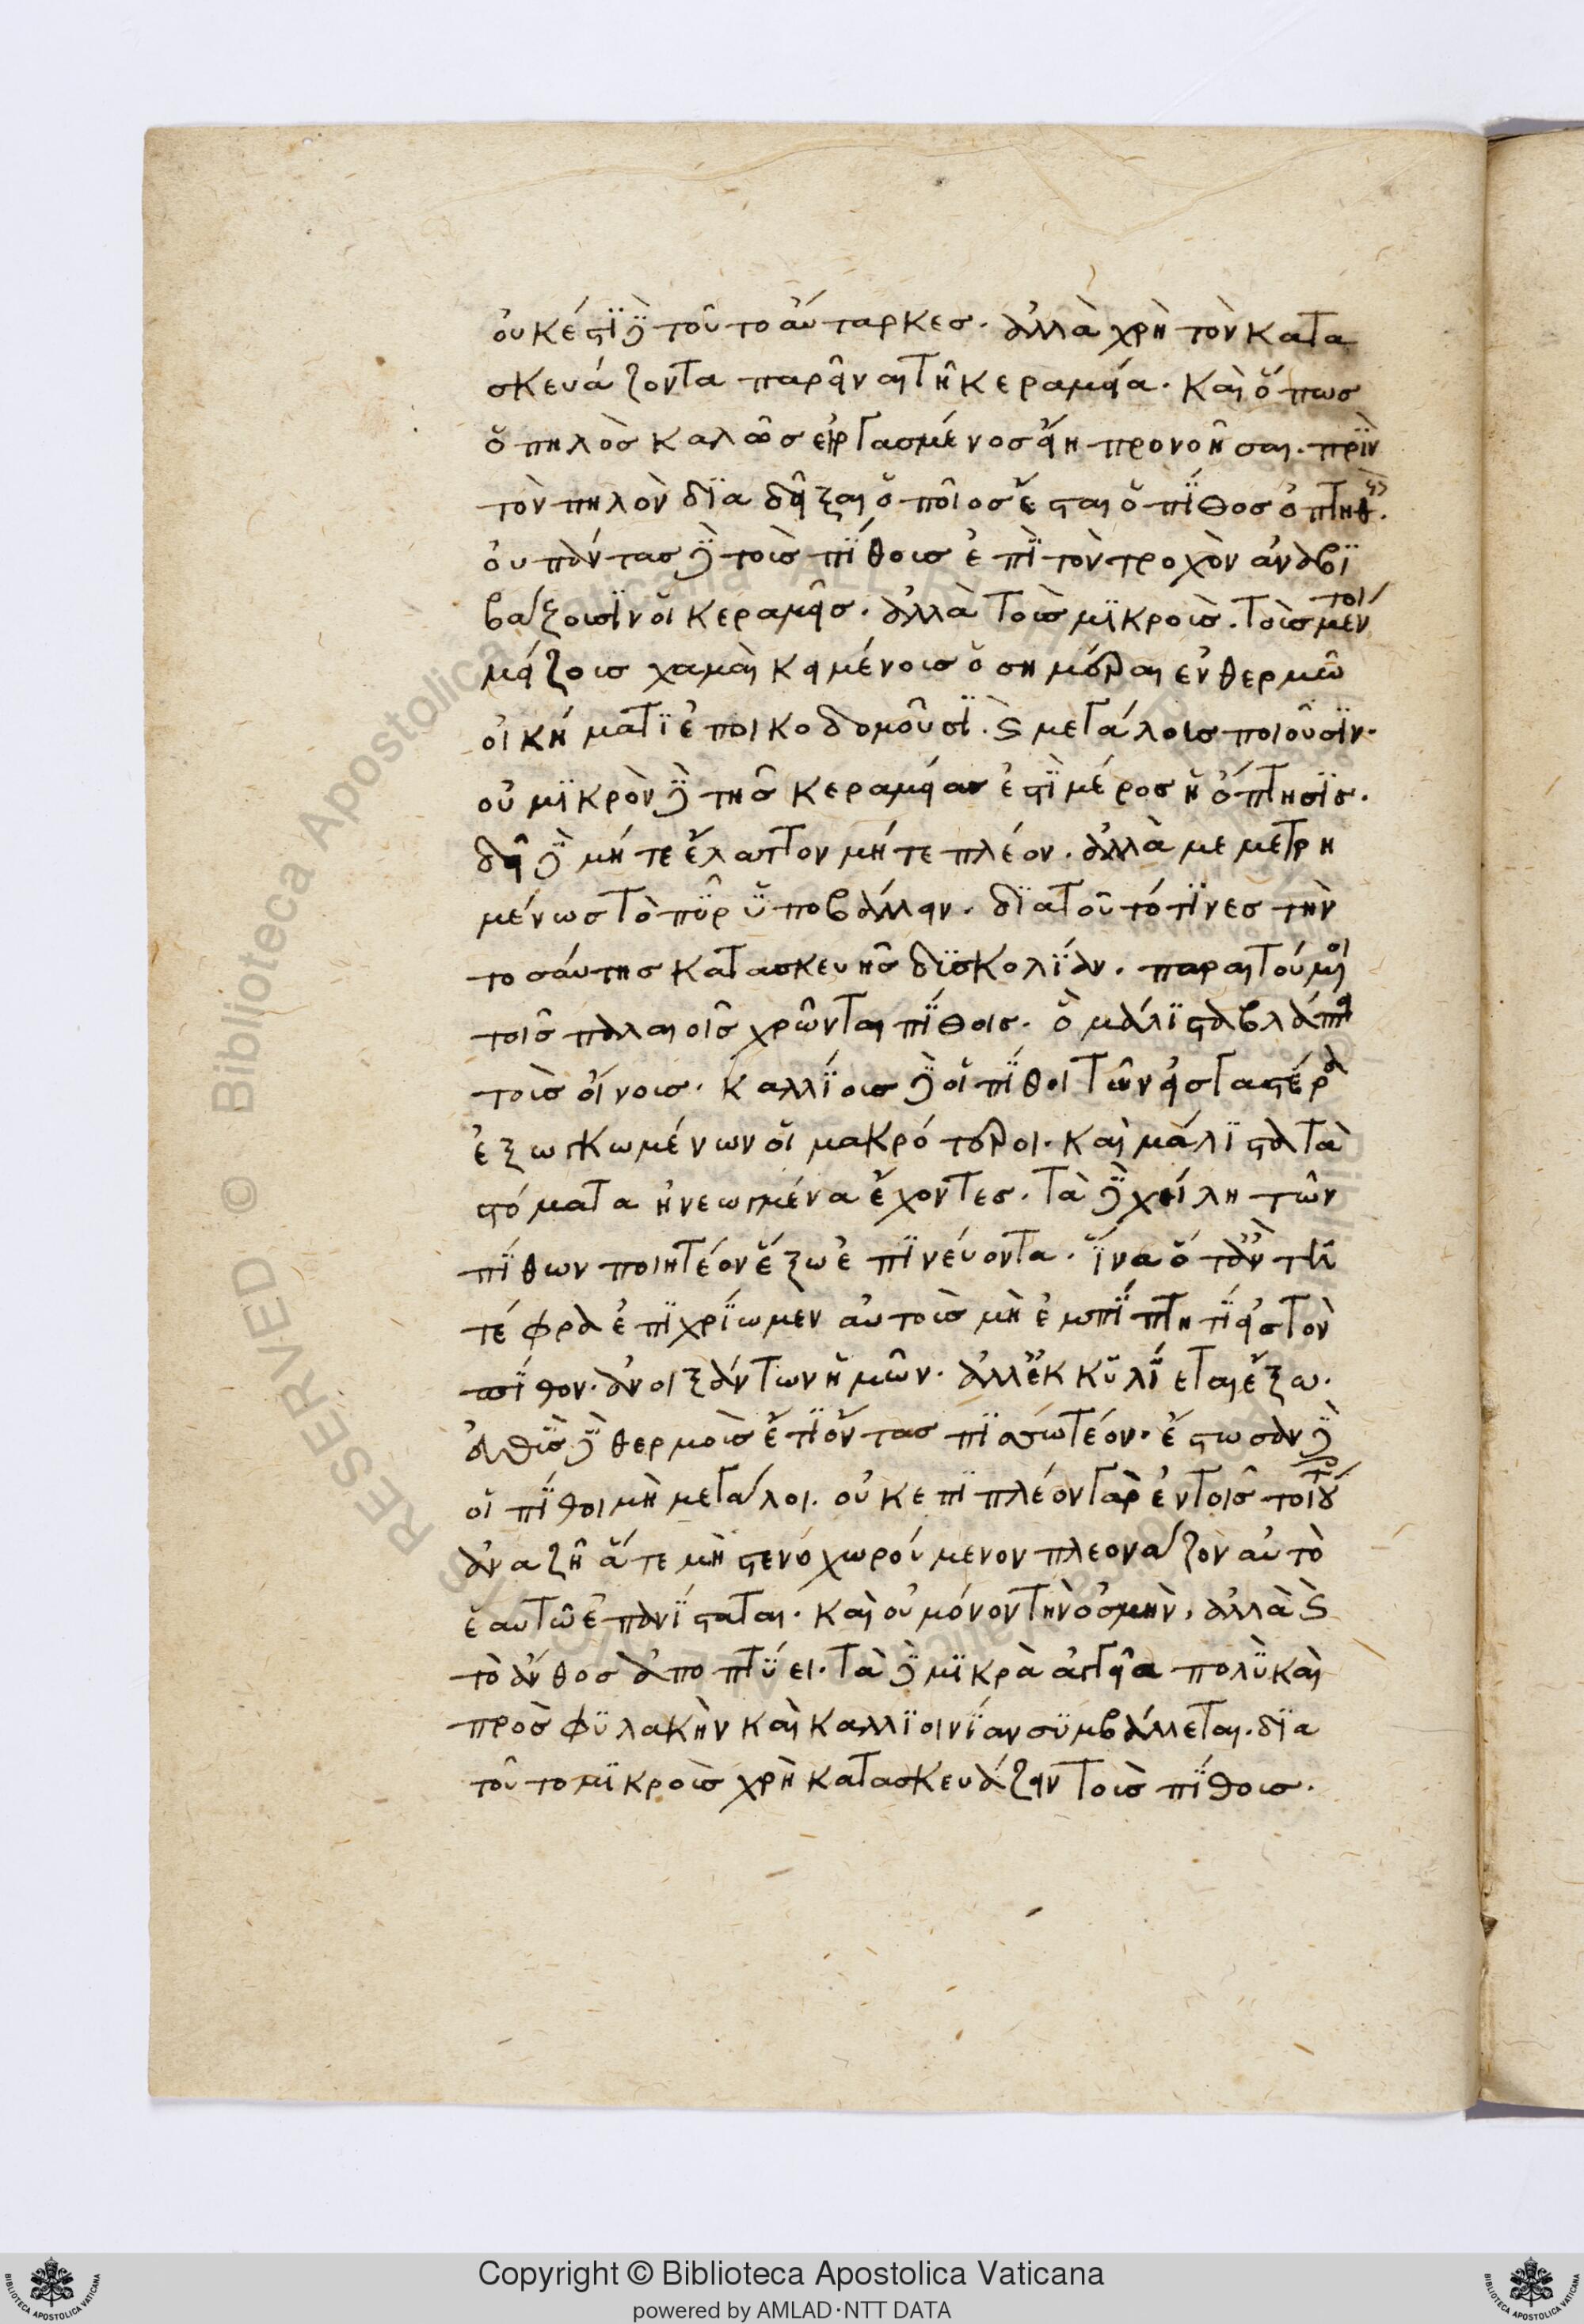 οὐκ ἔστι δὲ τοῦτο αὔταρκες. ἀλλὰ χρὴ τὸν κατα
σκευάζοντα παρεῖναι τῆ κεραμεία. καὶ ὅπως
ὁ πηλὸς καλῶς εἰργασμένος εἴη προνοῆσαι. πρὶν
τὸν πηλὸν διαδεῖξαι ὁποῖος ἔσται ὁ πίθος ὀπτηθεὶς.
οὐ πάντας δὲ τοὺς πίθους ἐπὶ τὸν τροχὸν ἀναβι
βάζουσιν οἱ κεραμεῖς. ἀλλὰ τοὺς μικροὺς. τοὺς μέντοι
μείζους χαμαὶ κειμένους ὁσημέραι ἐν θερμῶ
οἰκήματι ἐποικοδομοῦσι. καὶ μεγάλους ποιοῦσιν.
οὐ μικρὸν δὲ τῆς κεραμείας ἐστὶ μέρος ἡ ὄπτησις.
δεῖ δὲ μήτε ἔλαττον μήτε πλέον. ἀλλὰ μεμετρη
μένως τὸ πῦρ ὑποβάλλειν. διὰ τοῦτό τινες τὴν
τοσαύτης κατασκευῆς δισκολίαν. παραιτούμενοι
τοῖς παλαιοῖς χρῶνται πίθοις. ὃ μάλιστα βλάπτει
τοὺς οἴνους. καλλίους δὲ οἱ πίθοι τῶν εἰς γαστέρα
ἐξωγκωμένων οἱ μακρότεροι. καὶ μάλιστα τὰ
στόματα ἠνεωγμένα ἔχοντες. τὰ δὲ χείλη τῶν
πίθων ποιητέον ἔξω ἐπινεύοντα. ἵνα ὅταν τὴν
τέφραν ἐπιχρίωμεν αὐτοὺς μὴ ἐμπίπτη τι εἰς τὸν
πίθον. ἀνοιξάντων ἡμῶν. ἀλλ' ἐκκυλίεται ἔξω.
εὐθὺς δὲ θερμοὺς ἔτι ὄντας πισσωτέον. ἔστωσαν δὲ
οἱ πίθοι μὴ μεγάλοι. οὐκ ἐπιπλέον γὰρ ἐν τοῖς τοιούτοις
ἀναζῆ ἅτε μὴ στενοχωρούμενον πλεονάζον αὐτὸ
ἑαυτῶ ἐπανίσταται. καὶ οὐ μόνον τὴν ὀσμὴν, ἀλλὰ καὶ
τὸ ἄνθος ἀποπτύει. τὰ δὲ μικρὰ ἀγγεῖα πολὺ καὶ
πρὸς φυλακὴν καὶ καλλιοινίαν συμβάλλεται. διὰ
τοῦτο μικροὺς χρὴ κατασκευάζειν τοὺς πίθους.